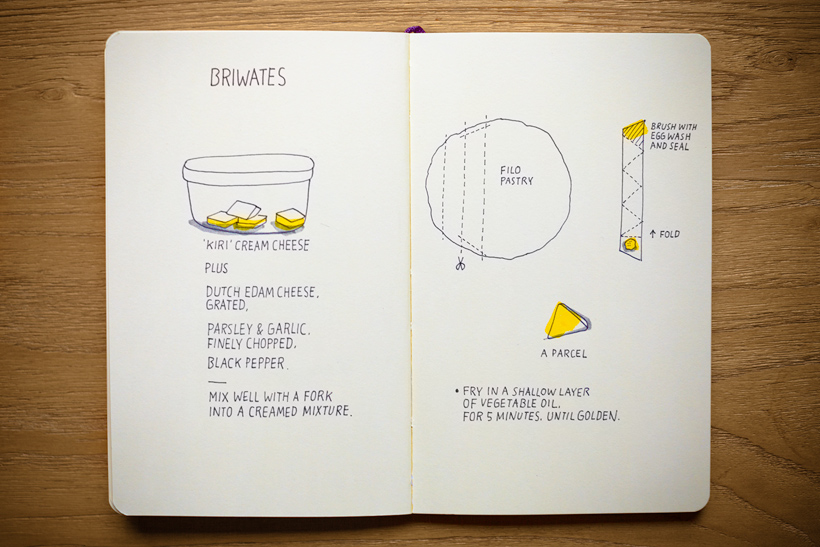 BRIWATES
'KIRI' CREAM CHEESE
PLUS
DUTCH EDAM CHEESE,
GRATED,
PARSLEY & GARLIC.
FINELY CHOPPED,
BLACK PEPPER.
MIX WELL WITH A FORK
INTO A CREAMED MIXTURE.
FILO
PASTRY
BRUSH WITH
EGG WASH
AND SEAL
↑ FOLD
A PARCEL
• FRY IN A SHALLOW LAYER
OF VEGETABLE OIL.
FOR 5 MINUTES. UNTIL GOLDEN.